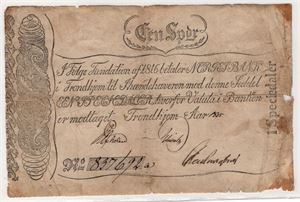 Een Spdr
I Følge Fundation af 1816 betaler NORGES BANK
i Trondhjem til Ihændehaveren med denne Seddel
EEN SPECIEDALER hvorfor Valuta i Banken
er modtaget. Trondhjem Aar
No 837,692
1 Speciedaler